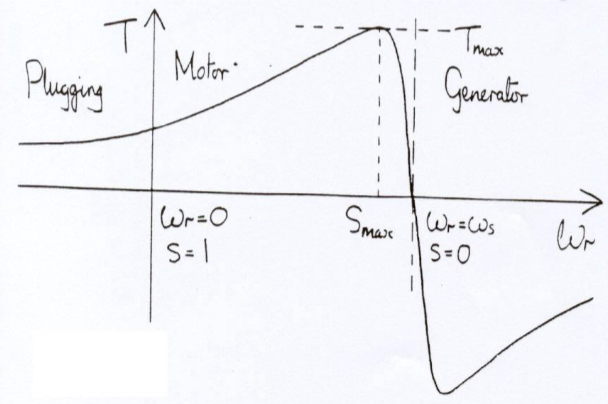 T
Plugging
Motor
Tmax
Generator
ωr=0
S=1
Smax
ωr=ωs
S=0
ωr